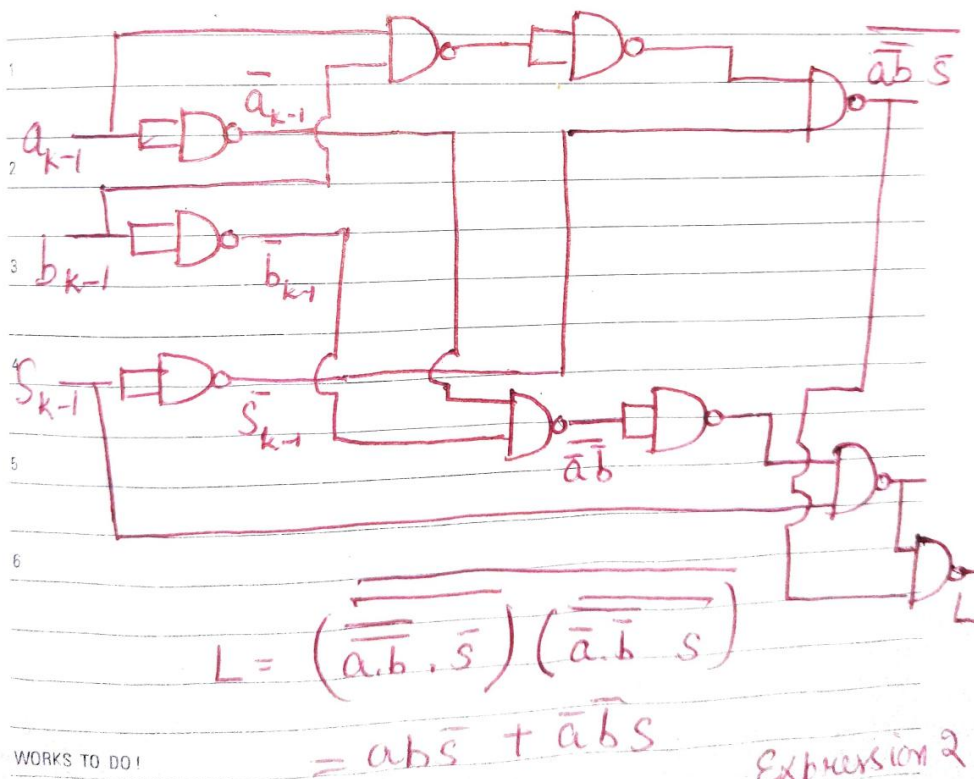 1
a̿b̿ s̅
a̅ₖ₋₁
aₖ₋₁
2
3
bₖ₋₁
b̅ₖ₋₁
4
Sₖ₋₁
S̅ₖ₋₁
a̅ b̅
5
6
L
L = (a.b . s̅) (a̅.b̅ s)
= abs̅ + a̅b̅s
WORKS TO DO!
Expression 2